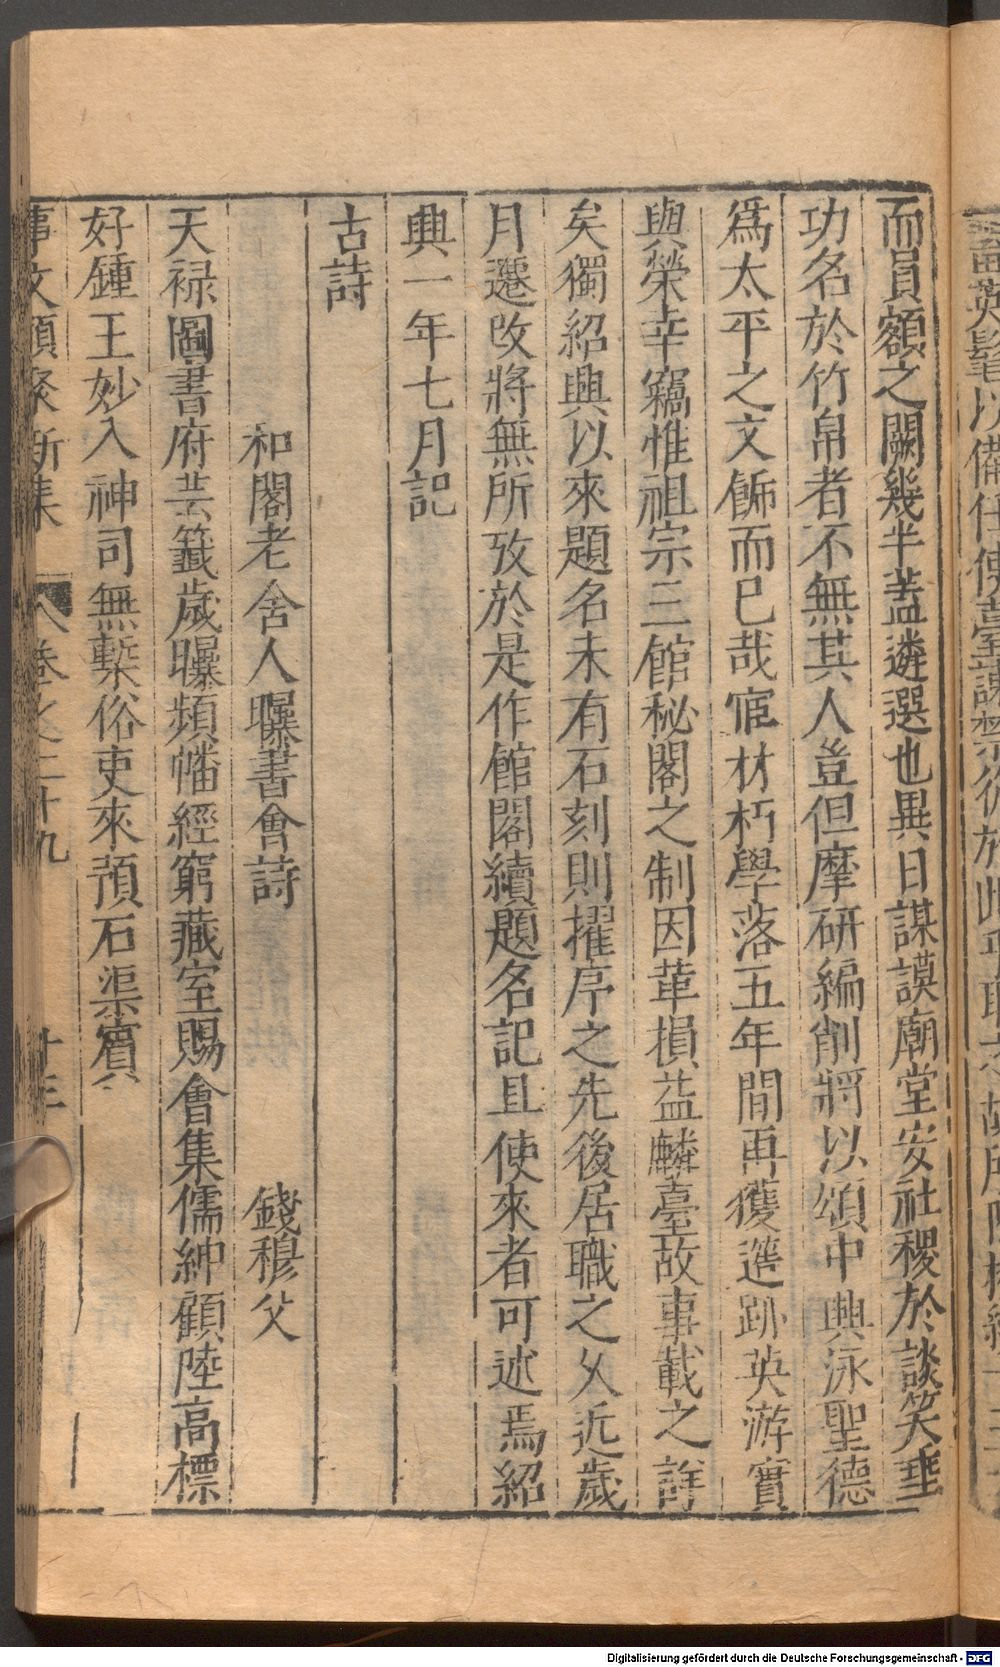 而員額之闕幾半蓋遴選也異日謀謨廟堂安社稷於談笑垂
功名於竹帛者不無其人豈但摩研編削將以頌中興泳聖德
爲太平之文餙而已哉宦材朽學落五年間再獲選跡英游實
與榮幸竊惟祖宗三館秘閣之制因革損益麟臺故事載之詳
矣獨紹興以來題名未有石刻則擢序之先後居職之久近歲
月遷改將無所攷於是作館閣續題名記且使來者可述焉紹
興一年七月記
古詩
和閣老舍人曝書會詩 錢穆父
天祿圖書府芸籤歲曝頻幡經窮藏室賜會集儒紳顧陸高標
好鍾王妙入神司無槧俗吏來預石渠賓
事文類聚新集 卷之二十九 十三
以備任使臺諫
Digitalisierung gefördert durch die Deutsche Forschungsgemeinschaft - DFG